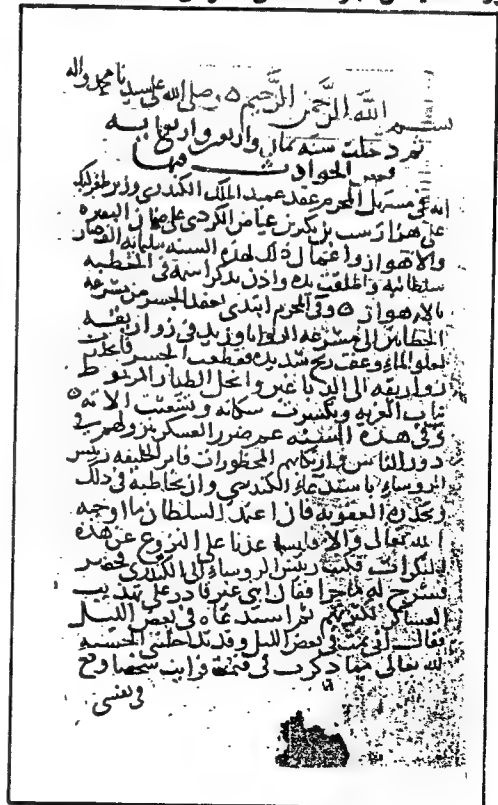 بسم الله الرحمن الرحيم صلى الله على سيدنا محمد واله
ثم دخلت سنة ثمان واربعين واربعمائة
فمن الحوادث فيها
انه في مستهل المحرم عقد عميد الملك الكندري وزير طغرلبك
على هزارسب بن بنكير بن عياض الكردي على ضمان البصره
والاهواز واعمال ذلك لهذه السنه
سلطانيه واطلقت يده واذن بذكر اسمه في الخطبه
بالاهواز وفي المحرم ابتدى بعقد الجسر من مشرعة
الحطابين الى مشرعه الروايا وزيد في زواريقه
لعلو الماء وعصفت ريح شديده فقطعت الجسر
زواريقه الى وانحل الطيار المربوط
بباب الغربه وتكسرت سكانه وتشعثت الاته
وفي هذه السنه عم ضرر العسكر بنزولهم في
دور الناس وارتكابهم المحظورات فامر الخليفه رئيس
الروساء باستدعاء الكندري وان يخاطبه في ذلك
ويحذره العقوبه فان اعتمد السلطان ما اوجبه
الله تعالى والا على النزوح عن هذه
المنكرات فكتب رئيس الروساء الى الكندري فحضر
فشرح له ما جرا فقال انني غير قادر على تهذيب
العساكر لكثرتهم ثم استدعاه في بعض الليل
فقال اني نمت في بعض الليل وقد تداخلني الخشيه
لله تعالى مما ذكرت في فرايت شخصا وقع
في نفسي